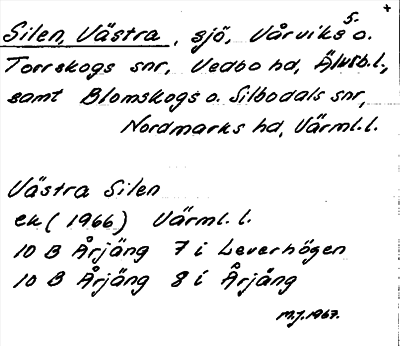 Silen, Västra, sjö, Vårviks s. o.
Torrskogs snr, Vedbo hd, Älvsb. l.,
samt Blomskogs o. Silbodals snr,
Nordmarks hd, Värml. l.
Västra Silen
ek (1966) Värml. l.
10 B Årjäng 7 i Leverhögen
10 B Årjäng 8 i Årjäng
M.J. 1967.